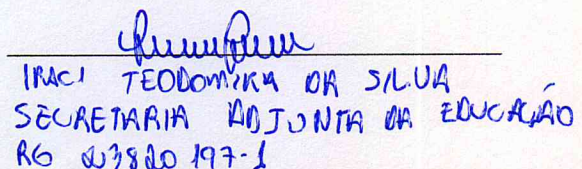 IRACI TEODOMIRA DA SILVA
SECRETARIA ADJUNTA DA EDUCAÇÃO
RG 23820197-1